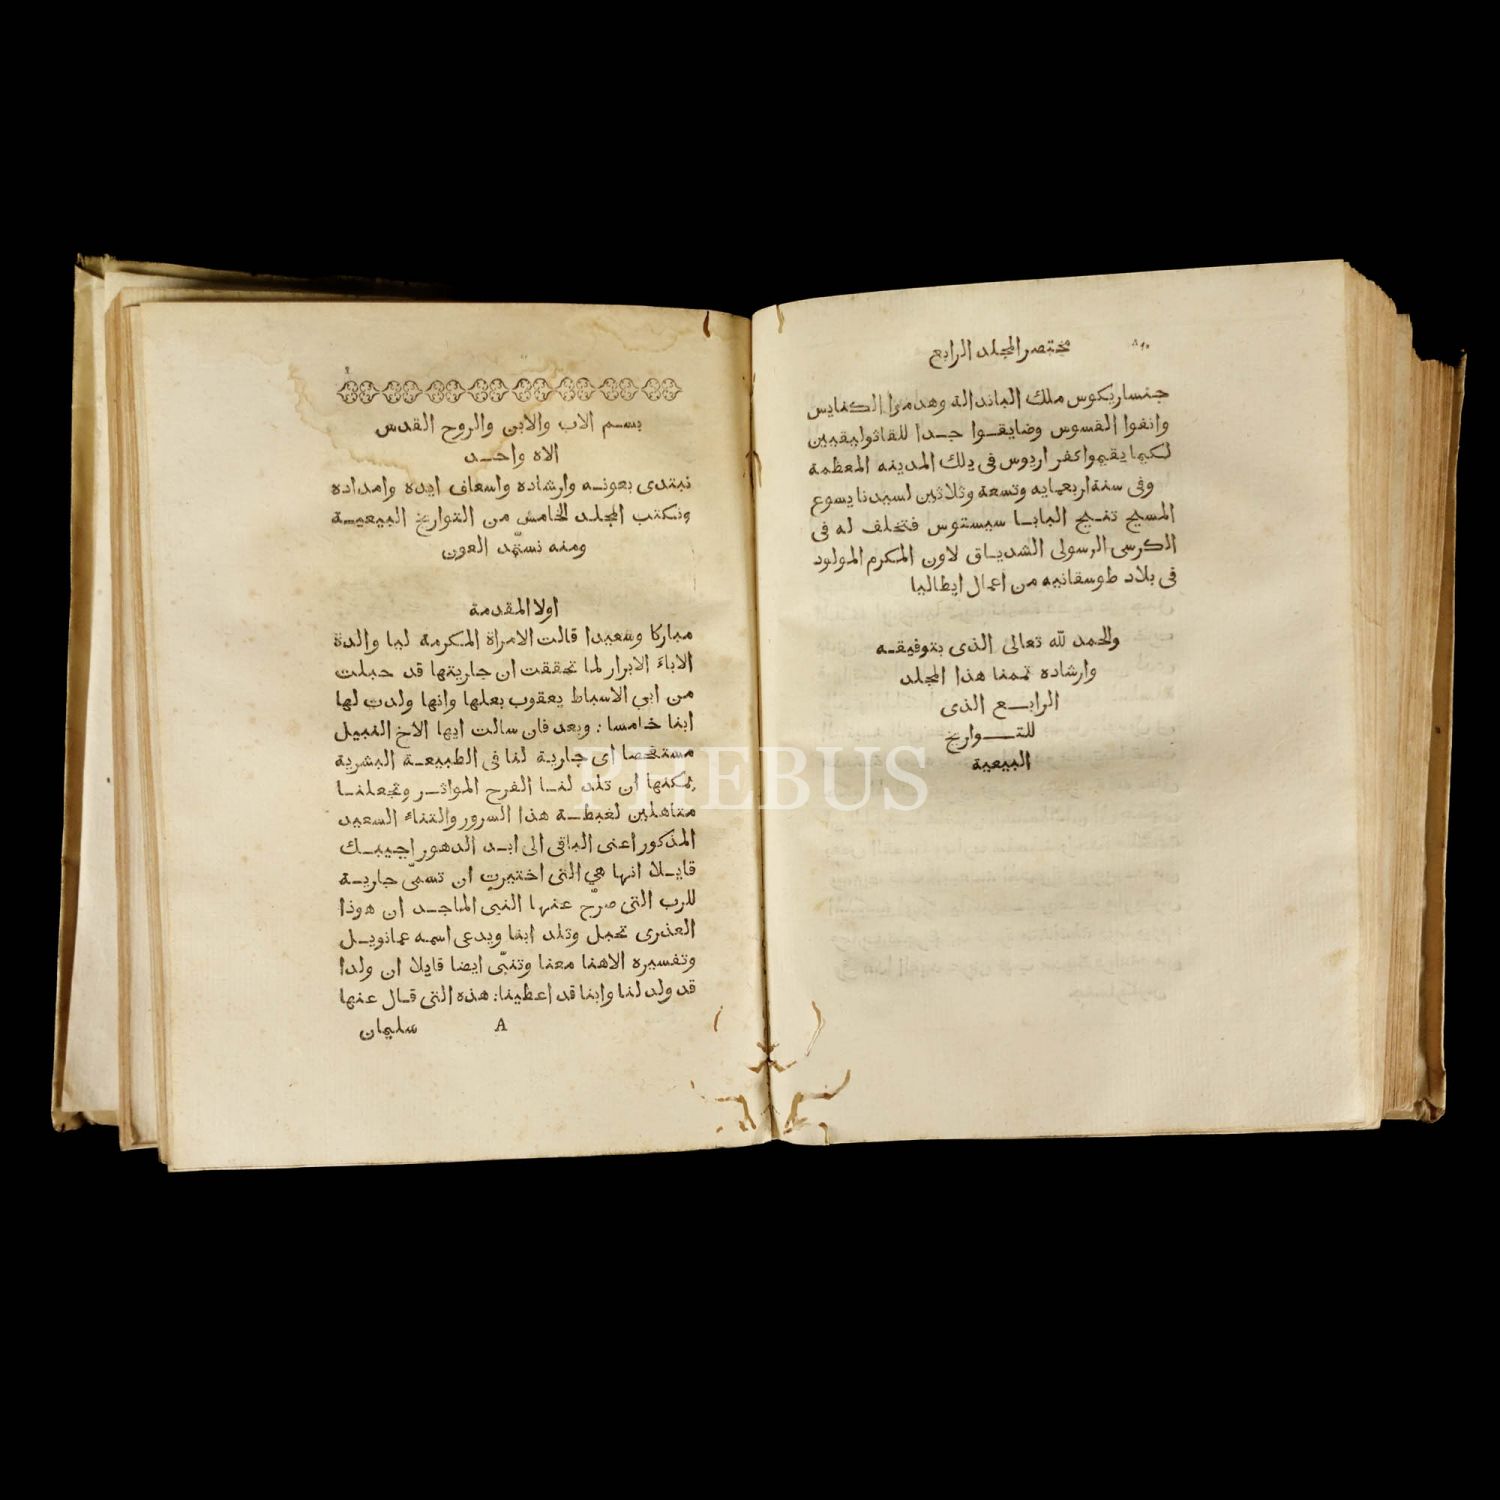 مختصر المجلد الرابع
جنساريكوس ملك الباندالة وهدموا الكنايس
وانفوا القسوس وضايقوا جدا للقاثوليقيين
لكيما يقيموا كفر اريوس فى ذلك المدينه المعظمة
وفى سنة اربعمايه وتسعة وثلاثين لسيدنا يسوع
المسيح تنيح البابا سيستوس فتخلف له فى
الكرسى الرسولى الشدياق لاون المكرم المولود
فى بلاد طوسقانيه من اعمال ايطاليا
والحمد لله تعالى الذى بتوفيقه
وارشاده تممنا هذا المجلد
الرابع الذى
للتواريخ
البيعية
بسم الاب والابن والروح القدس
الاه واحد
نبتدى بعونه وارشاده واسعاف ايده وامداده
ونكتب المجلد الخامس من التواريخ البيعية
ومنه نستمّد العون
اولا المقدمة
مباركا وسعيدا قالت الامراة المكرمة ليا والدة
الاباء الابرار لما تحققت ان جاريتها قد حبلت
من ابي الاسباط يعقوب بعلها وانها ولدت لها
ابنا خامسا : وبعد فان سالت ايها الاخ النبيل
مستفحصا اى جارية لنا فى الطبيعة البشرية
يمكنها ان تلد لنا الفرح المواثر وتجعلنا
متاهلين لغبطة هذا السرور والثناء السعيد
المذكور اعنى الباقى الى ابد الدهور اجيبك
قايلا انها هي التى اختيرت ان تسمّى جارية
للرب التى صرّح عنها النبى الماجد ان هوذا
العذرى تحبل وتلد ابنا ويدعى اسمه عمانويل
وتفسيره الاهنا معنا وتنبّى ايضا قايلا ان ولدا
قد ولد لنا وابنا قد اعطينا : هذه التى قال عنها
A سليمان
PHEBUS